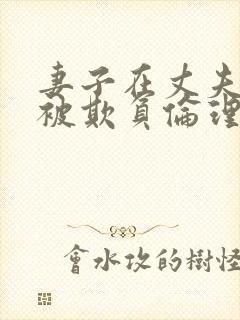 妻子在丈夫
被欺負倫理
會水攻的樹怪